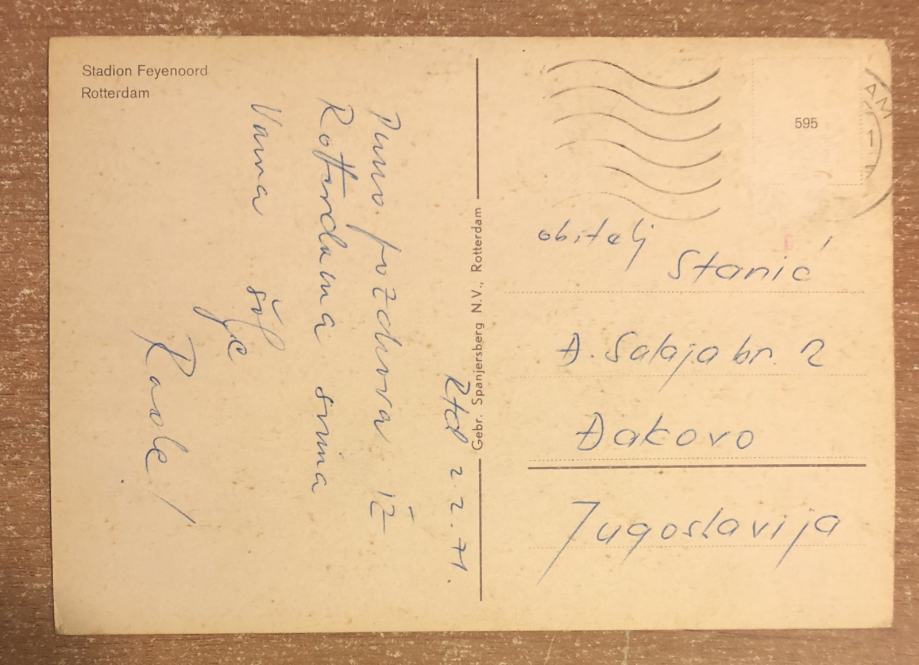 Stadion Feyenoord
Rotterdam
Rtd 2.2.71.
Puno pozdrava iz
Rotterdama svima
Vama šalje
Rade!
Gebr. Spanjersberg N.V., Rotterdam
595
AM
obitelj
Stanić
Đ. Salaja br. 2
Đakovo
Jugoslavija